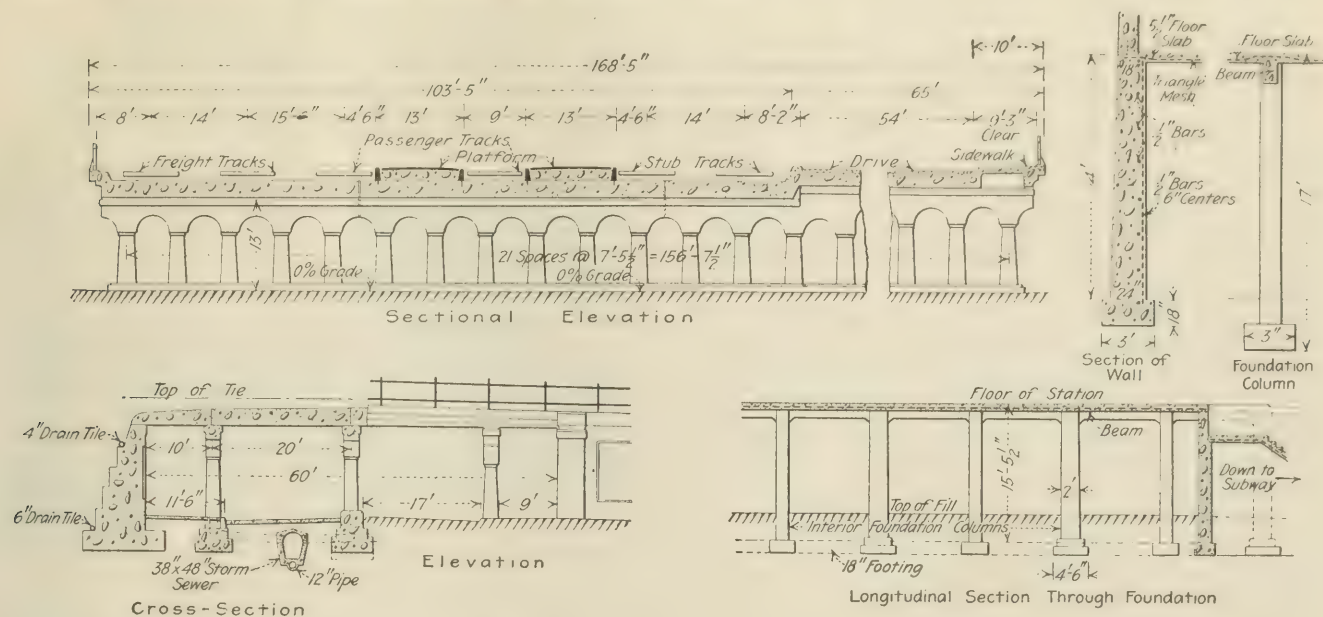 10'
168'-5"
103'-5"
65'
8' 14' 15'-6" 4'6" 13' 9' 13' 4'-6" 14' 8'-2" 54' 9'-3"
Clear
Passenger Tracks
Freight Tracks
Platform
Stub Tracks
Drive
Sidewalk
13'
21 Spaces @ 7'-5½" = 156'-7½"
0% Grade
0% Grade
Sectional Elevation
5½" Floor
Slab
18"
Triangle
Mesh
½" Bars
½" Bars
6" Centers
24"
18"
3'
Section of
Wall
Floor Slab
Beam
17'
3"
Foundation
Column
Top of Tie
4" Drain Tile
10' 20'
60'
11'-6"
17' 9'
6" Drain Tile
38"x48" Storm
Sewer
12" Pipe
Elevation
Cross-Section
Floor of Station
Beam
15'-5½"
2'
Down to
Subway
Top of Fill
Interior Foundation Columns
18" Footing
4'-6"
Longitudinal Section Through Foundation